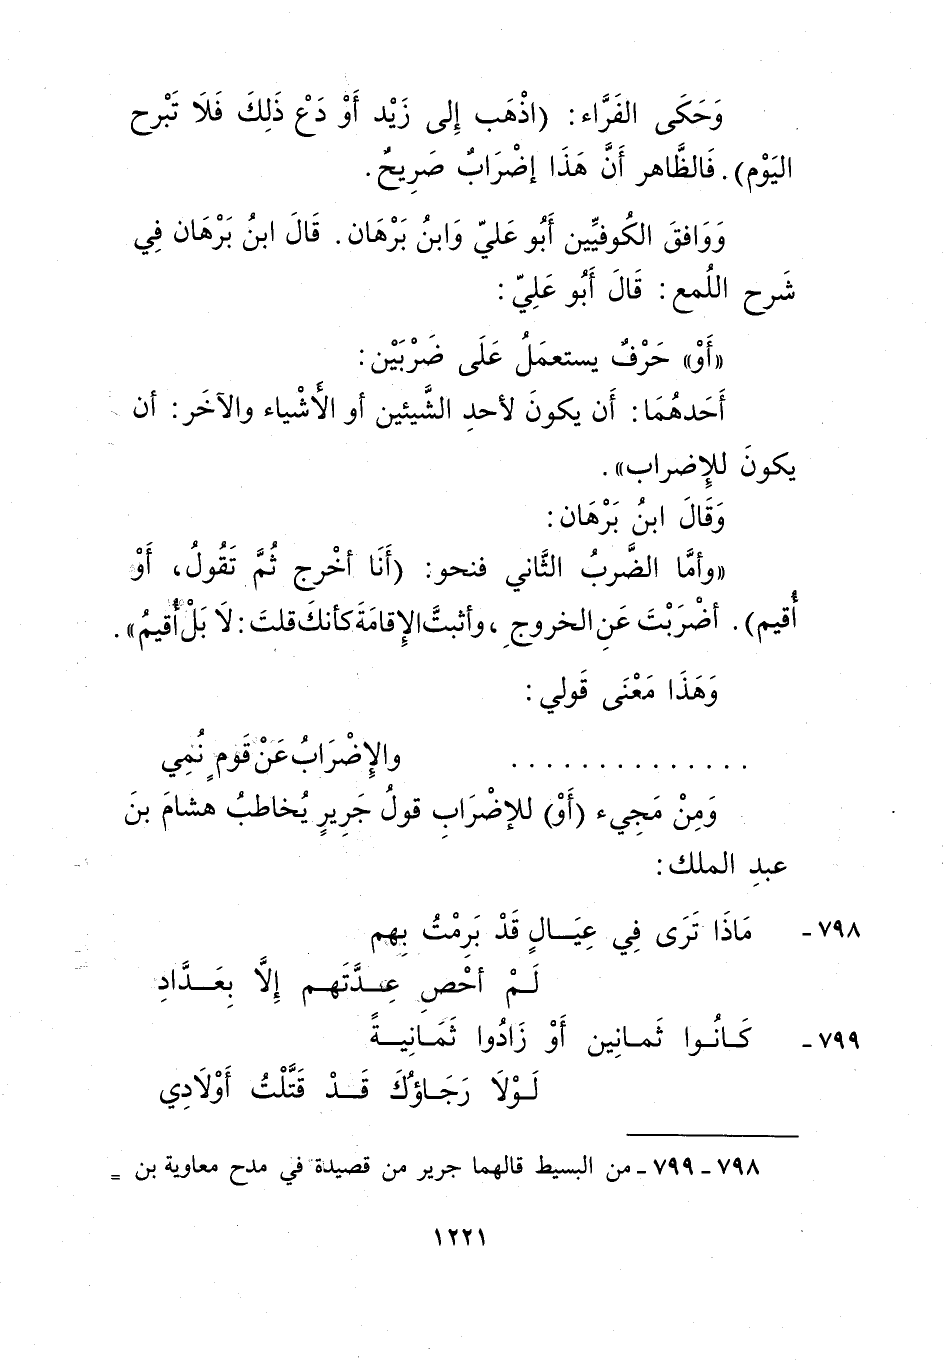 وَحَكَى الفَرَّاء: (اذْهَب إِلى زَيْد أَوْ دَعْ ذَلِكَ فَلَا تَبْرح
اليَوْم). فَالظَّاهر أَنَّ هَذَا إِضْرَابٌ صَرِيحٌ.
وَوَافقَ الكُوفيِّين أَبُو عَليّ وَابنُ بَرْهَان. قَالَ ابنُ بَرْهَان فِي
شَرح اللُمع: قَالَ أَبُو عَلِيّ:
«أَوْ» حَرْفٌ يستعمَلُ عَلَى ضَرْبَيْن:
أَحَدهُمَا: أَن يكونَ لأحدِ الشَّيئين أو الأَشْياء والآخَر: أن
يكونَ للإِضراب».
وَقَالَ ابنُ بَرْهَان:
«وأمَّا الضَّربُ الثَّاني فنحو: (أَنَا أخْرج ثُمَّ تَقُولُ، أَوْ
أُقيم). أضْرَبْتَ عَنِ الخروجِ، وأثبتَّ الإِقامَةَ كأنكَ قلتَ: لَا بَلْ أُقيمُ».
وَهَذَا مَعْنَى قَولي:
. . . . . . . . . . . . . . والإِضْرَابُ عَنْ قَومٍ نُمِي
وَمِنْ مَجِيء (أَوْ) للإضْرَابِ قولُ جَرِيرٍ يُخاطبُ هشامَ بنَ
عبدِ الملك:
٧٩٨ - مَاذَا تَرَى فِي عِيَـالٍ قَدْ بَرِمْتُ بِهِم
لَـمْ أحْصِ عِـدَّتَهـم إِلَّا بِعَـدَّادِ
٧٩٩ - كَـانُـوا ثَمانِين أَوْ زَادُوا ثَمَـانِيـةً
لَـوْلَا رَجَـاؤُكَ قَـدْ قَتَّلْتُ أَوْلَادِي
٧٩٨ - ٧٩٩ - من البسيط قالهما جرير من قصيدة في مدح معاوية بن =
١٢٢١